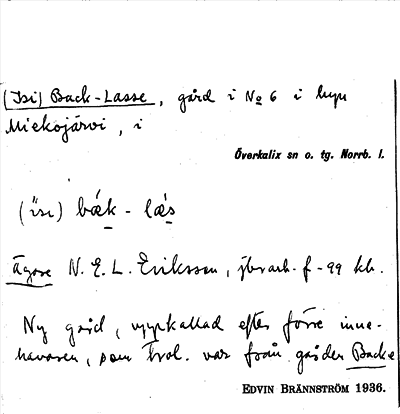 (Isi) Back-Lasse, gård i № 6 i byn
Miekojärvi, i
Överkalix sn o. tg. Norrb. l.
(ïsı) bǽk - lǽs
Ägare N. E. L. Eriksson, f -99 kb.
Ny gård, uppkallad efter förre inne-
havaren, som trol. var från gården Back e
EDVIN BRÄNNSTRÖM 1936.